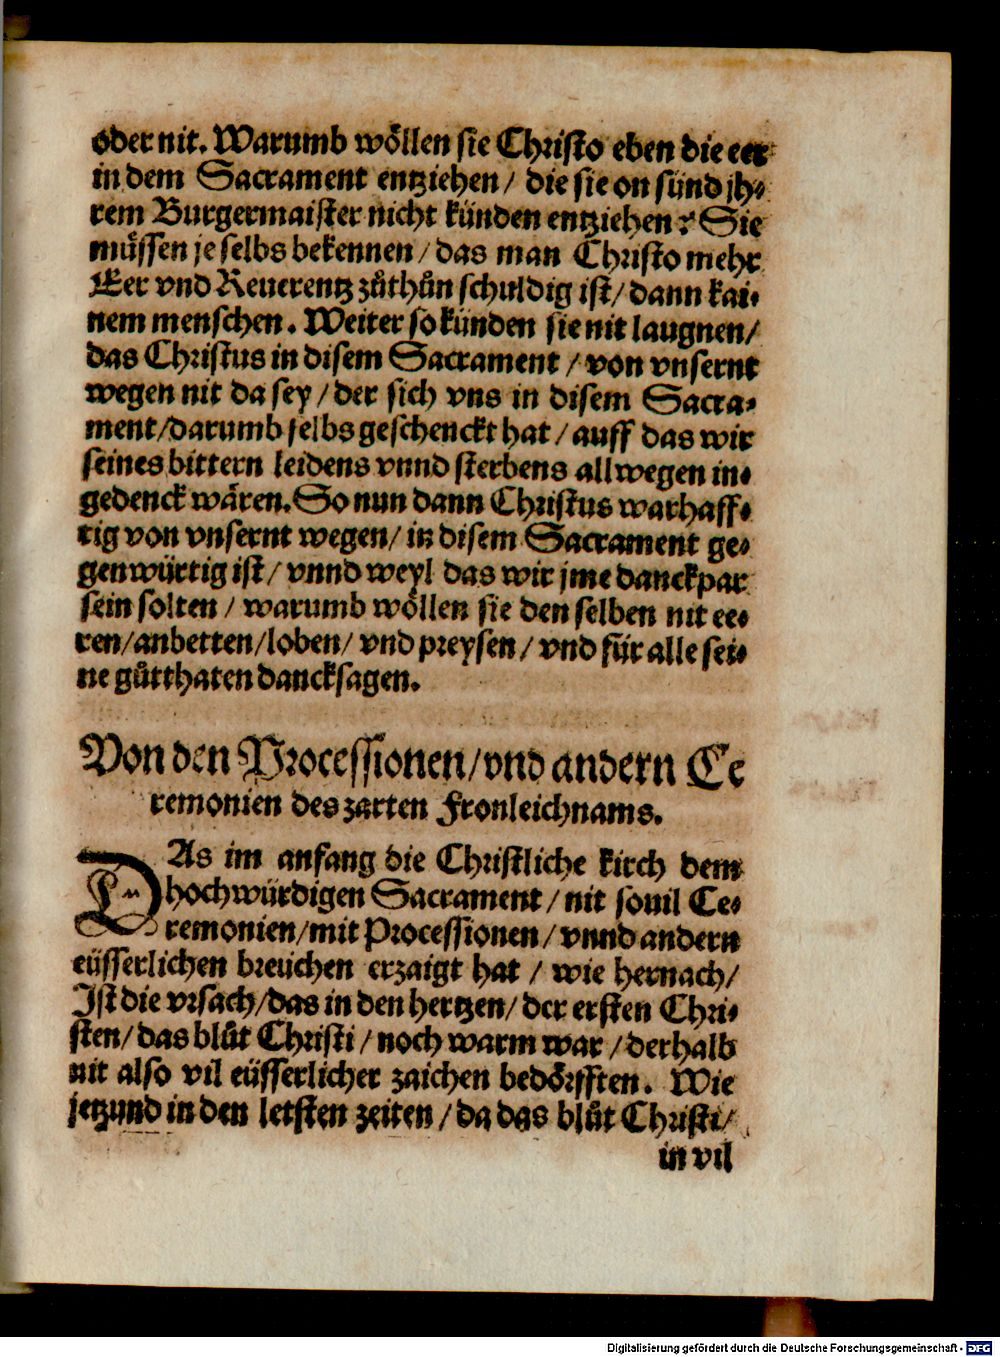 oder nit. Warumb wöllen sie Christo eben die eer
in dem Sacrament entziehen / die sie on sünd jh-
rem Burgermaister nicht künden entziehen? Sie
müssen je selbs bekennen / das man Christo mehr
Eer vnd Reuerentz zůthůn schuldig ist / dann kai-
nem menschen. Weiter so künden sie nit laugnen /
das Christus in disem Sacrament / von vnsernt
wegen nit da sey / der sich vns in disem Sacra-
ment / darumb selbs geschenckt hat / auff das wir
seines bittern leidens vnnd sterbens allwegen in-
gedenck wären. So nun dann Christus warhaff-
tig von vnsernt wegen / in disem Sacrament ge-
genwürtig ist / vnnd weyl das wir jme danckpar
sein solten / warumb wöllen sie den selben nit ee-
ren / anbetten / loben / vnd preysen / vnd für alle sei-
ne gůtthaten dancksagen.
Von den Processionen / vnd andern Ce
remonien des zarten Fronleichnams.
DAs im anfang die Christliche kirch dem
hochwürdigen Sacrament / nit souil Ce-
remonien / mit Processionen / vnnd andern
eüsserlichen breüchen erzaigt hat / wie hernach /
Ist die vrsach / das in den hertzen / der ersten Chri-
sten / das blůt Christi / noch warm war / derhalb
nit also vil eüsserlicher zaichen bedörfften. Wie
jetzund in den letsten zeiten / da das blůt Christi /
in vil
Digitalisierung gefördert durch die Deutsche Forschungsgemeinschaft - DFG